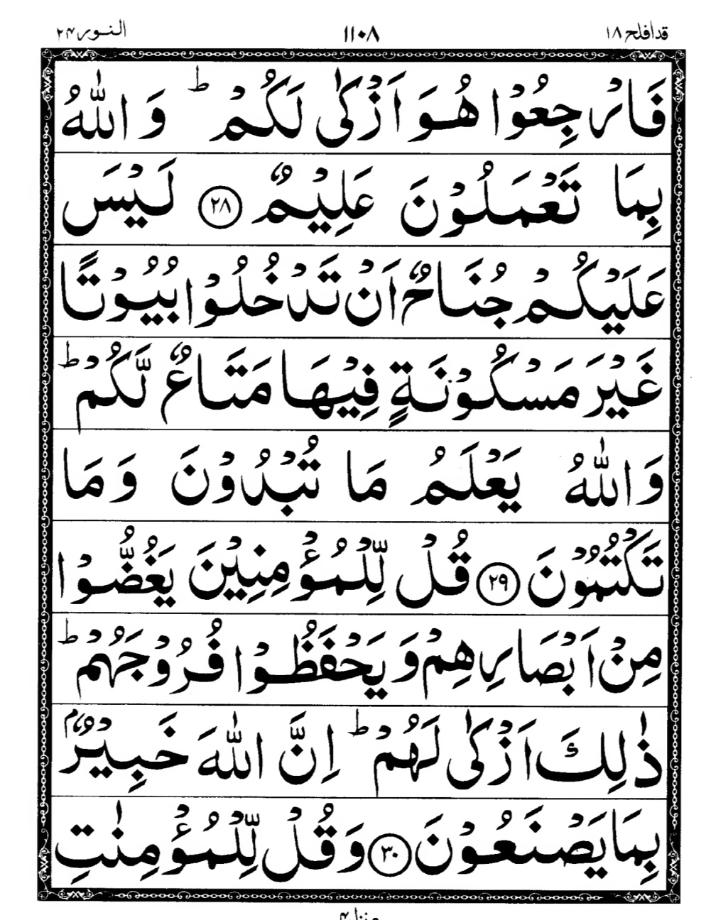 قدافلح ١٨ ١١٠٨ النور ٢٤
فَارْجِعُوْا هُوَ اَزْكٰى لَكُمْ ؕ وَ اللّٰهُ
بِمَا تَعْمَلُوْنَ عَلِيْمٌ ﴿٢٨﴾ لَيْسَ
عَلَيْكُمْ جُنَاحٌ اَنْ تَدْخُلُوْا بُيُوْتًا
غَيْرَ مَسْكُوْنَةٍ فِيْهَا مَتَاعٌ لَّكُمْ ؕ
وَاللّٰهُ يَعْلَمُ مَا تُبْدُوْنَ وَمَا
تَكْتُمُوْنَ ﴿٢٩﴾ قُلْ لِّلْمُؤْمِنِيْنَ يَغُضُّوْا
مِنْ اَبْصَارِهِمْ وَيَحْفَظُوْا فُرُوْجَهُمْ ؕ
ذٰلِكَ اَزْكٰى لَهُمْ ؕ اِنَّ اللّٰهَ خَبِيْرٌۢ
بِمَا يَصْنَعُوْنَ ﴿٣٠﴾ وَقُلْ لِّلْمُؤْمِنٰتِ